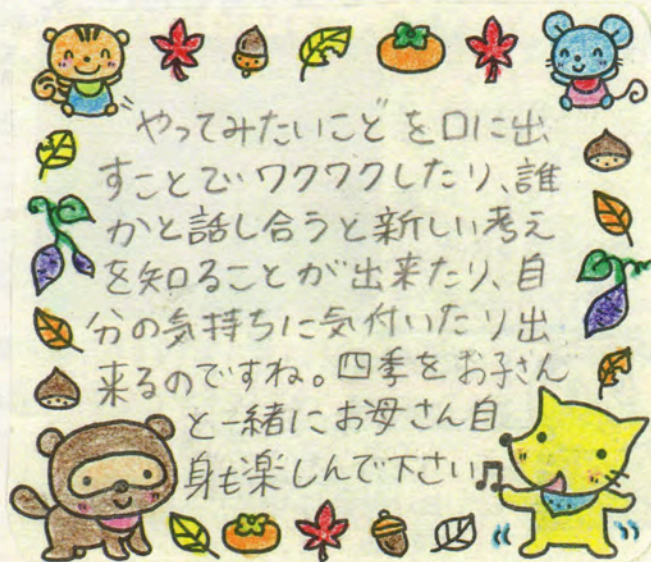 やってみたいことを口に出
すことでワクワクしたり、誰
かと話し合うと新しい考え
を知ることが出来たり、自
分の気持ちに気付いたり出
来るのですね。四季をお子さん
と一緒にお母さん自
身も楽しんで下さい♫